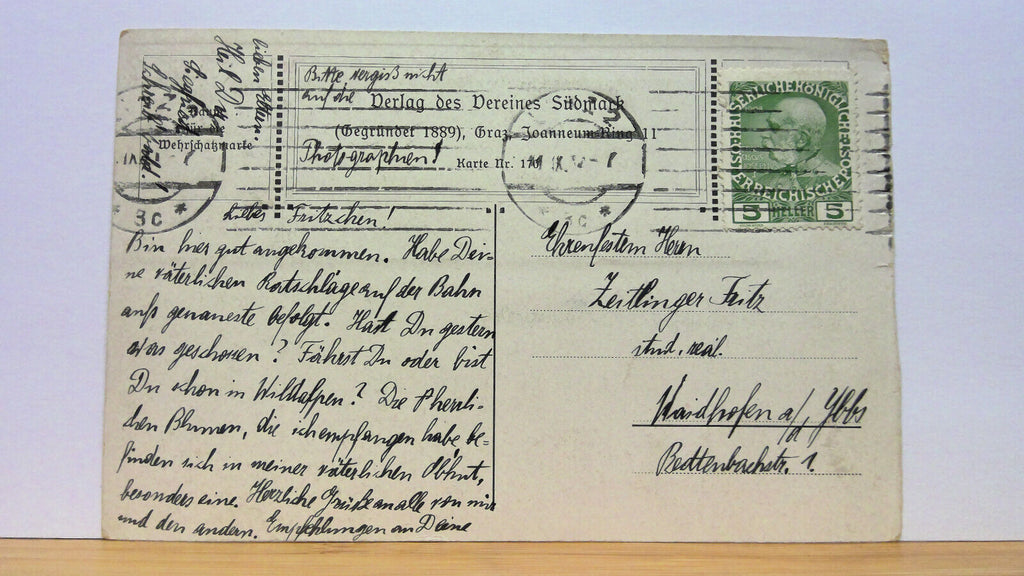 Bitte vergiß nicht
auf die
Verlag des Vereines Südmark
(Gegründet 1889), Graz, Joanneum-Ring 11
Photographien!
Karte Nr. 170
Wehrschatzmarke
lieben Eltern.
Heil Dir
Siegfried
Schreib bald!
3c
IX
KAISERLICHEKÖNIGLICHE
ÖSTERREICHISCHE POST
5 HELLER 5
Liebes Fritzchen!
Bin hier gut angekommen. Habe Dei-
ne väterlichen Ratschläge auf der Bahn
aufs genaueste befolgt. Hast Du gestern
was geschoren? Fährst Du oder bist
Du schon in Wildalpen? Die herrli-
chen Blumen, die ich empfangen habe, be-
finden sich in meiner väterlichen Obhut,
besonders eine. Herzliche Grüße an alle von mir
und den andern. Empfehlungen an Deine
Ehrenfestem Herrn
Zeitlinger Fritz
stud. real.
Waidhofen a/d Ybbs
Bettenbachstr. 1.